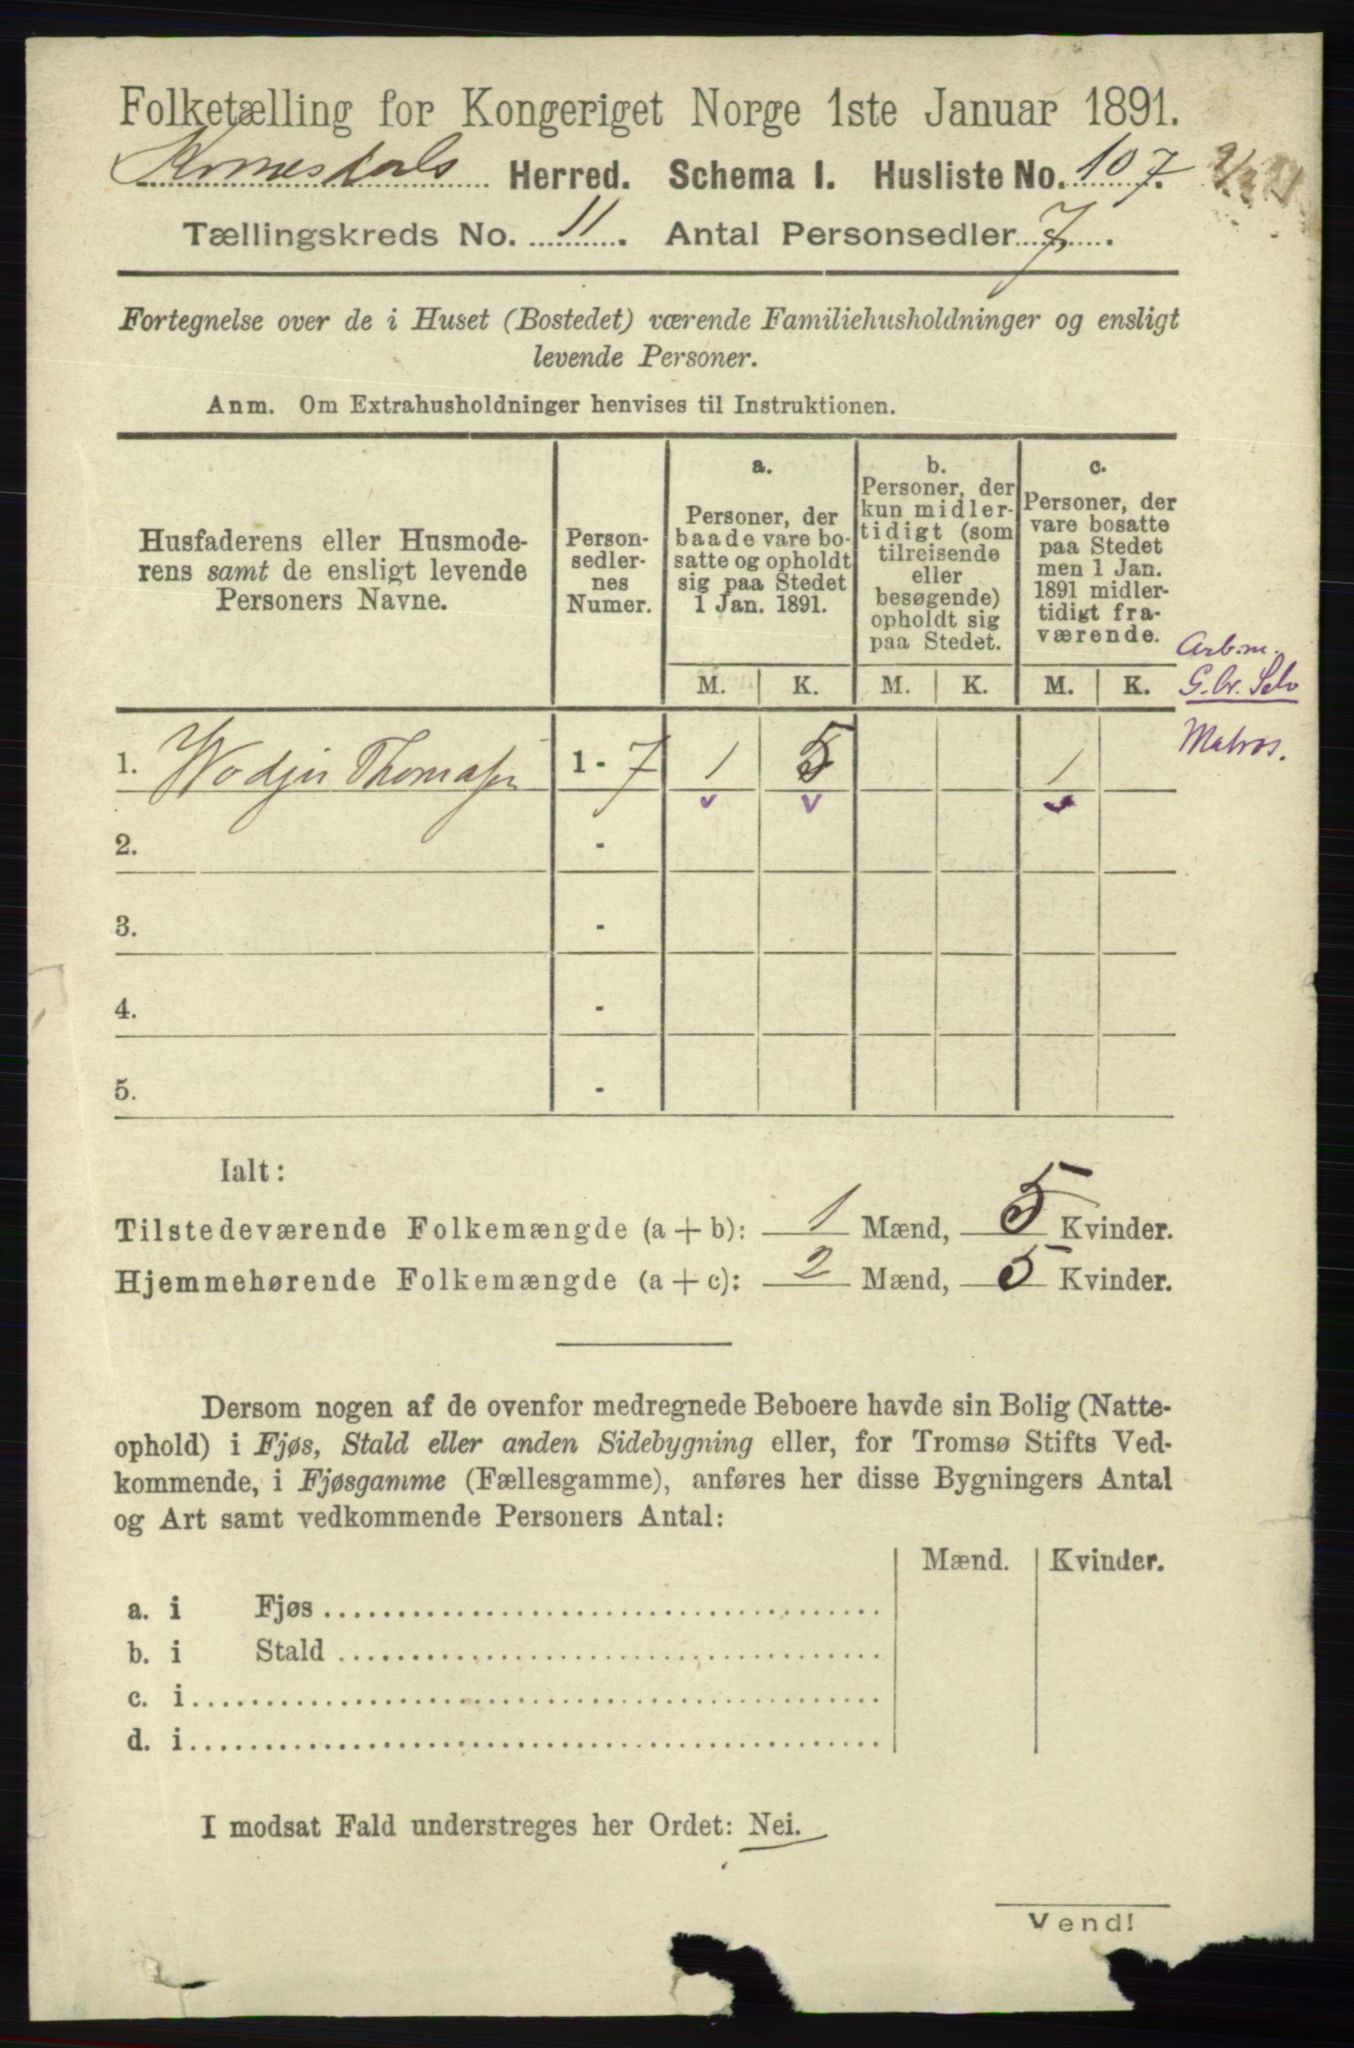 Folketælling for Kongeriget Norge 1ste Januar 1891.
Herred. Schema I. Husliste No. 107.
Tællingskreds No. 11. Antal Personsedler 7.
Fortegnelse over de i Huset (Bostedet) værende Familiehusholdninger og ensligt
levende Personer.
Anm. Om Extrahusholdninger henvises til Instruktionen.
Husfaderens eller Husmode-
rens samt de ensligt levende
Personers Navne.
Person-
sedler-
nes
Numer.
a.
Personer, der
baade vare bo-
satte og opholdt
sig paa Stedet
1 Jan. 1891.
b.
Personer, der
kun midler-
tidigt (som
tilreisende
eller
besøgende)
opholdt sig
paa Stedet.
c.
Personer, der
vare bosatte
paa Stedet
men 1 Jan.
1891 midler-
tidigt fra-
værende.
Arb.m.
G.br. Selv
M. K. M. K. M. K.
Matros.
1. 1 - 7 1 5 1
2. -
3. -
4. -
5. -
Ialt:
Tilstedeværende Folkemængde (a + b): 1 Mænd, 5 Kvinder.
Hjemmehørende Folkemængde (a + c): 2 Mænd, 5 Kvinder.
Dersom nogen af de ovenfor medregnede Beboere havde sin Bolig (Natte-
ophold) i Fjøs, Stald eller anden Sidebygning eller, for Tromsø Stifts Ved-
kommende, i Fjøsgamme (Fællesgamme), anføres her disse Bygningers Antal
og Art samt vedkommende Personers Antal:
Mænd. Kvinder.
a. i Fjøs
b. i Stald
c. i
d. i
I modsat Fald understreges her Ordet: Nei.
Vend!